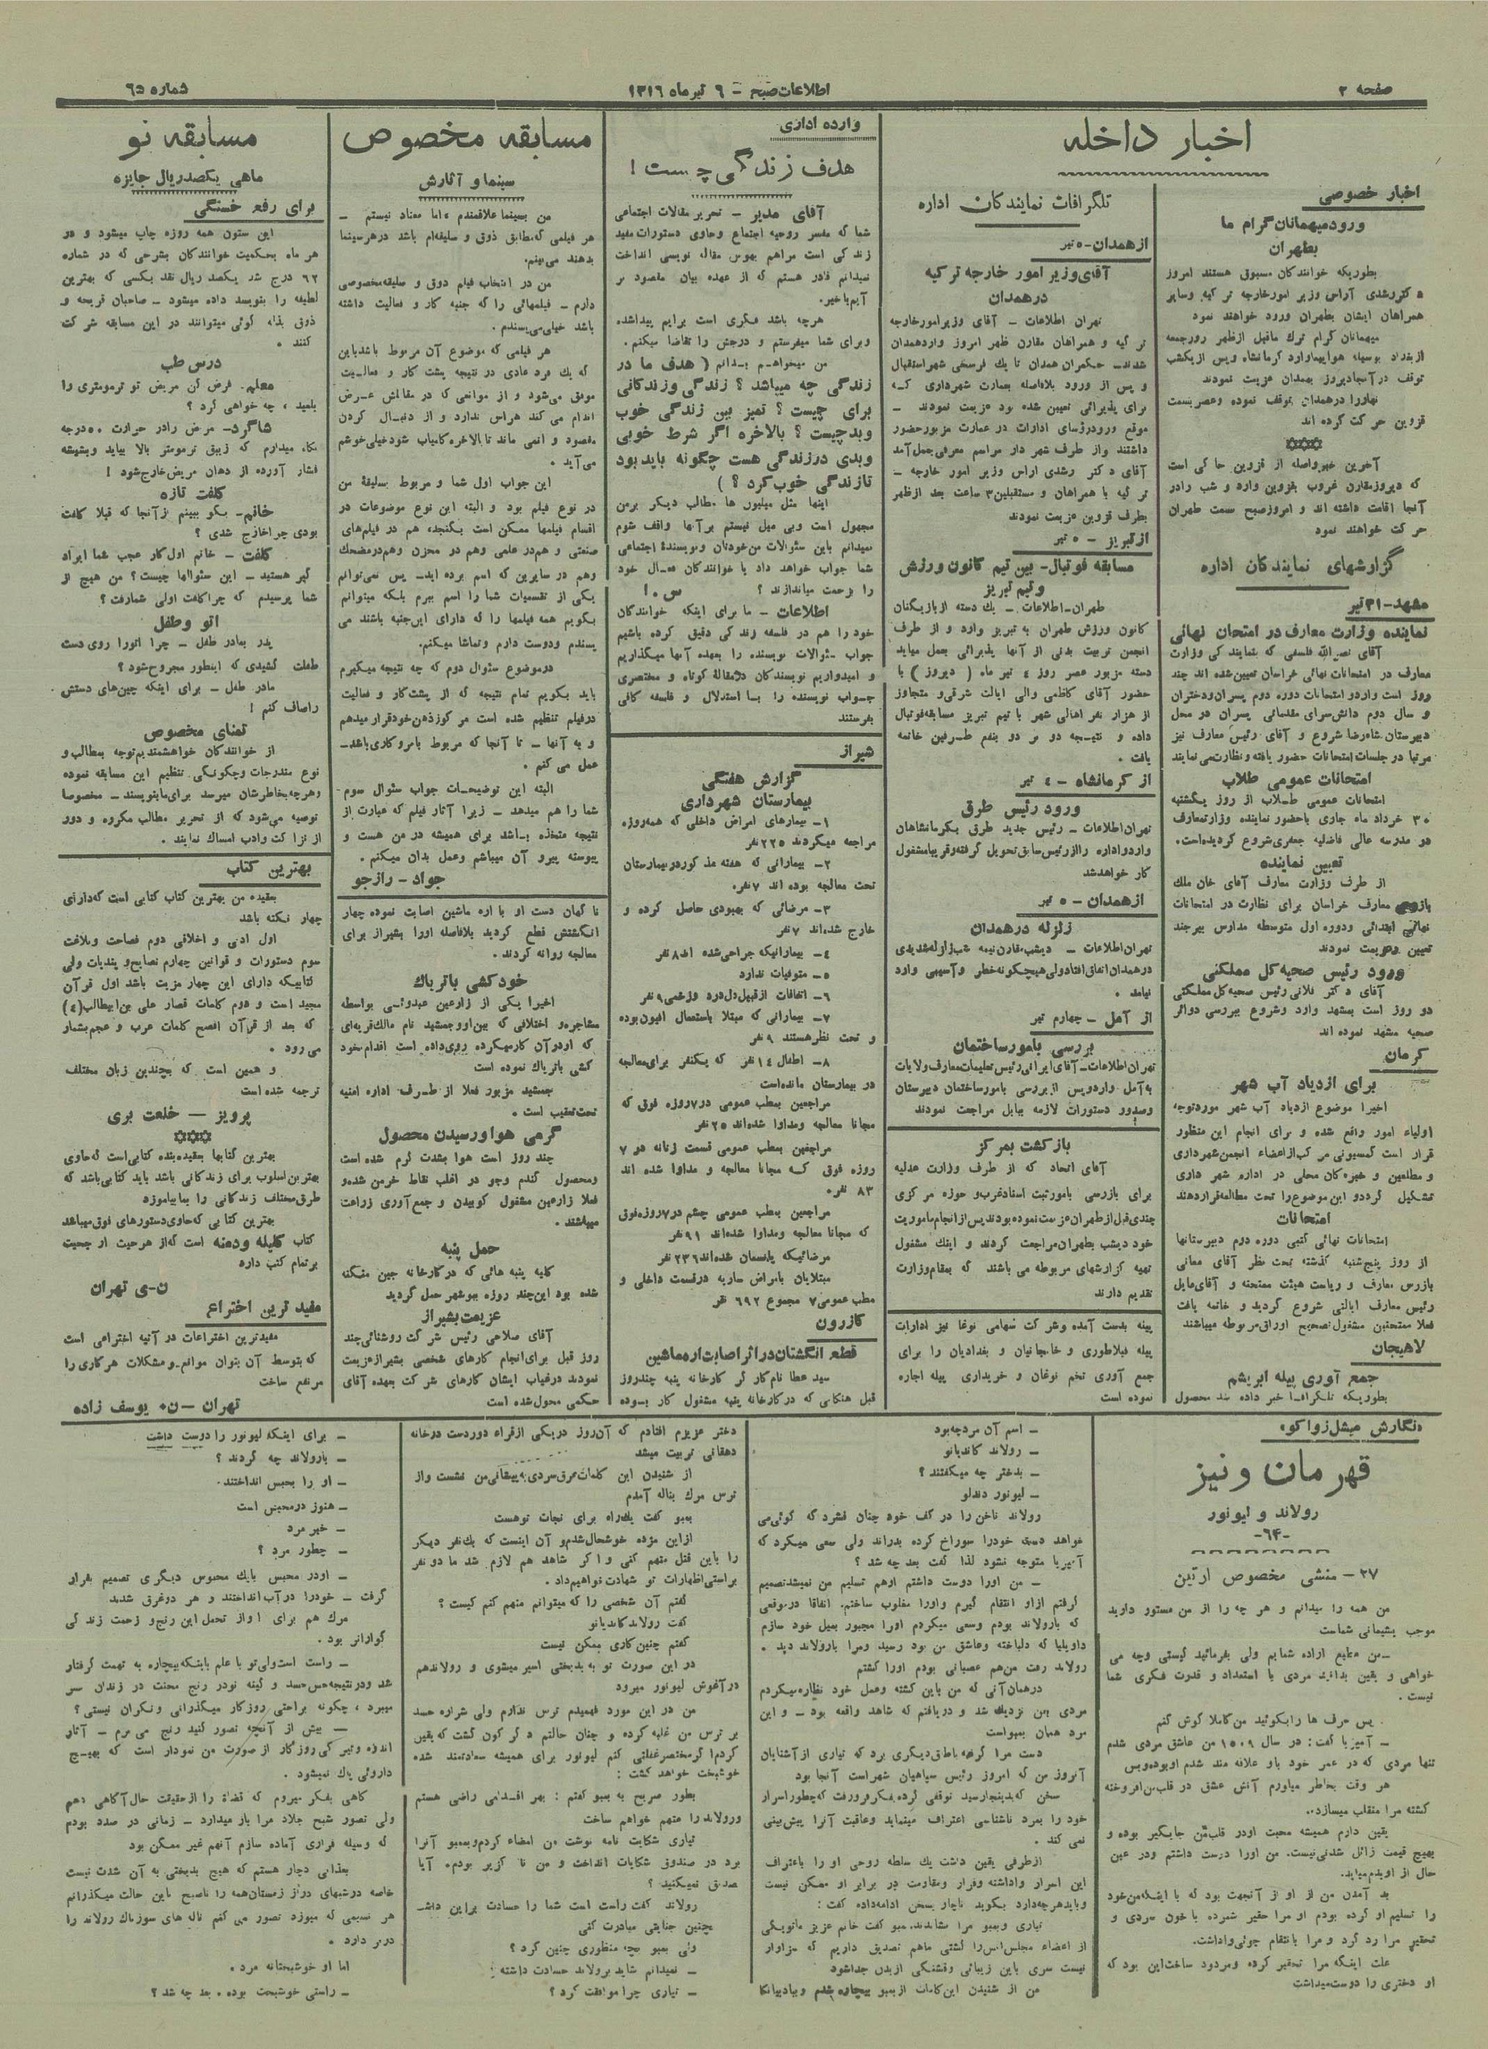 صفحه ۲
اطلاعات صبح – ۶ تیر ماه ۱۳۱۶
شماره ۶۵
اخبار داخله
اخبار خصوصی
ورود میهمانان گرام ما
بطهران
بطوریکه خوانندگان مسبوق هستند امروز
دکتر رشدی آراس وزیر امور خارجه ترکیه وسایر
همراهان ایشان بطهران ورود خواهند نمود
میهمانان گرام ترك ماقبل از ظهر روز جمعه
از بغداد بوسیله هواپیما وارد کرمانشاه و پس از یکشب
توقف در آنجا دیروز بهمدان عزیمت نمودند
نهار را در همدان توقف نموده و عصر بسمت
قزوین حرکت کرده اند
آخرین خبر واصله از قزوین حاکی است
که دیروز مقارن غروب بقزوین وارد و شب را در
آنجا اقامت داشته اند و امروز صبح سمت طهران
حرکت خواهند نمود
گزارشهای نمایندگان اداره
مشهد – ۳۱ تیر
نماینده وزارت معارف در امتحان نهائی
آقای نصرالله فلسفی که بنمایندگی وزارت
معارف در امتحانات نهائی خراسان تعیین شده اند چند
روز است وارد و امتحانات دوره دوم پسران و دختران
و سال دوم دانش سرای مقدماتی پسران در محل
دبیرستان شاه رضا شروع و آقای رئیس معارف نیز
مرتبا در جلسات امتحانات حضور یافته و نظارت می نمایند
امتحانات عمومی طلاب
امتحانات عمومی طلاب از روز یکشنبه
۳۰ خرداد ماه جاری باحضور نماینده وزارت معارف
در مدرسه عالی فاضلیه جعفری شروع گردیده است.
تعیین نماینده
از طرف وزارت معارف آقای خان ملك
بازرس معارف خراسان برای نظارت در امتحانات
نهائی ابتدائی ودوره اول متوسطه مدارس بیرجند
تعیین و عزیمت نمودند
ورود رئیس صحیه کل مملکتی
آقای دکتر فلاتی رئیس صحیه کل مملکتی
دو روز است بمشهد وارد و شروع ببررسی دوائر
صحیه مشهد نموده اند
کرمان
برای ازدیاد آب شهر
اخیرا موضوع ازدیاد آب شهر مورد توجه
اولیاء امور واقع شده و برای انجام این منظور
قرار است کمیسیونی مرکب از اعضاء انجمن شهرداری
و مطلعین و خبرگان محلی در اداره شهر داری
تشکیل گردد و این موضوع را تحت مطالعه قرار دهند
امتحانات
امتحانات نهائی کتبی دوره دوم دبیرستانها
از روز پنج شنبه گذشته تحت نظر آقای معانی
بازرس معارف و ریاست هیئت ممتحنه و آقای مایل
رئیس معارف ایالتی شروع گردید و خاتمه یافت
فعلا ممتحنین مشغول تصحیح اوراق مربوطه میباشند
لاهیجان
جمع آوری پیله ابریشم
بطوریکه تلگرافا خبر داده شد محصول
تلگرافات نمایندگان اداره
از همدان – ۵ تیر
آقای وزیر امور خارجه ترکیه
در همدان
تهران اطلاعات – آقای وزیر امور خارجه
ترکیه و همراهان مقارن ظهر امروز وارد همدان
شدند – حکمران همدان تا یك فرسخی شهر استقبال
و پس از ورود بلافاصله بعمارت شهرداری که
برای پذیرائی تعیین شده بود عزیمت نمودند –
موقع ورود رؤسای ادارات در عمارت مزبور حضور
داشتند و از طرف شهر دار مراسم معرفی بعمل آمد
آقای دکتر رشدی اراس وزیر امور خارجه –
ترکیه با همراهان و مستقبلین ۳ ساعت بعد از ظهر
بطرف قزوین عزیمت نمودند
از تبریز – ۵ تیر
مسابقه فوتبال – بین تیم کانون ورزش
و تیم تبریز
طهران – اطلاعات – یك دسته از بازیکنان
کانون ورزش طهران به تبریز وارد و از طرف
انجمن تربیت بدنی از آنها پذیرائی بعمل میاید
دسته مزبور عصر روز ۴ تیر ماه ( دیروز ) با
حضور آقای کاظمی والی ایالت شرقی و متجاوز
از هزار نفر اهالی شهر با تیم تبریز مسابقه فوتبال
داده و نتیجه دو بر دو بنفع طرفین خاتمه
یافت.
از کرمانشاه – ۴ تیر
ورود رئیس طرق
تهران اطلاعات – رئیس جدید طرق بکرمانشاهان
وارد و اداره را از رئیس سابق تحویل گرفته و قریبا مشغول
کار خواهد شد
از همدان – ۵ تیر
زلزله در همدان
تهران اطلاعات – دیشب مقارن نیمه شب زلزله شدیدی
در همدان اتفاق افتاد ولی هیچگونه خطر و آسیبی وارد
نیامد.
از آمل – چهارم تیر
بررسی بامور ساختمان
تهران اطلاعات – آقای ایرانی رئیس تعلیمات معارف ولایات
به آمل وارد و پس از بررسی بامور ساختمان دبیرستان
وصدور دستورات لازمه ببابل مراجعت نمودند
بازگشت بمرکز
آقای اتحاد که از طرف وزارت عدلیه
برای بازرسی بامور ثبت اسناد غرب و حوزه مرکزی
چندی قبل از طهران عزیمت نموده بودند پس از انجام ماموریت
خود دیشب بطهران مراجعت کردند و اینك مشغول
تهیه گزارشهای مربوطه می باشند که بمقام وزارت
تقدیم دارند
پیله بدست آمده و شرکت سهامی نوغا نیز ادارات
پیله فیلاطوری و خاجانیان و بغدادیان را برای
جمع آوری تخم نوغان و خریداری پیله اجاره
نموده است
وارده اداری
هدف زندگی چیست !
آقای مدیر – تحریر مقالات اجتماعی
شما که مفسر روحیه اجتماع وحاوی دستورات مفید
زندگی است مراهم بهوس مقاله نویسی انداخت
نمیدانم قادر هستم که از عهده بیان مقصود بر
آیم یا خیر.
هرچه باشد فکری است برایم پیدا شده
و برای شما میفرستم و درجش را تقاضا میکنم.
من میخواهم بدانم ( هدف ما در
زندگی چه میباشد ؟ زندگی و زندگانی
برای چیست ؟ تمیز بین زندگی خوب
وبد چیست ؟ بالاخره اگر شرط خوبی
و بدی در زندگی هست چگونه باید بود
تازندگی خوب کرد ؟ )
اینها مثل میلیون ها مطالب دیگر بر من
مجهول است و بی میل نیستم بر آنها واقف شوم
نمیدانم باین سئوالات من خودتان و نویسندۀ اجتماعی
شما جواب خواهد داد یا خوانندگان فعال خود
را بزحمت میاندازند ؟ س . ا
اطلاعات – ما برای اینکه خوانندگان
خود را هم در فلسفه زندگی دقیق کرده باشیم
جواب سئوالات نویسنده را بعهده آنها میگذاریم
و امیدواریم نویسندگان در مقالۀ کوتاه و مختصری
جواب نویسنده را با استدلال و فلسفه کافی
بفرستند
شیراز
گزارش هفتگی
بیمارستان شهرداری
۱ – بیمارهای امراض داخلی که همه روزه
مراجعه میکردند ۲۲۵ نفر
۲ – بیمارانی که هفته مذکور در بیمارستان
تحت معالجه بوده اند ۷ نفر.
۳ – مرضائی که بهبودی حاصل کرده و
خارج شده اند ۷ نفر
۴ – بیمارانیکه جراحی شده اند ۸ نفر
۵ – متوفیات ندارد
۶ – اتفاقات از قبیل دل درد و زخمی ۹ نفر
۷ – بیمارانی که مبتلا باستعمال افیون بوده
و تحت نظر هستند ۹ نفر
۸ – اطفال ۱۴ نفر که یکنفر برای معالجه
در بیمارستان مانده است
مراجعین بمطب عمومی در ۷ روزه فوق که
مجانا معالجه ومداوا شده اند ۲۵ نفر
مراجعین بمطب عمومی قسمت زنانه در ۷
روزه فوق که مجانا معالجه و مداوا شده اند
۸۳ نفر.
مراجعین بمطب عمومی چشم در ۷ روزه فوق
که مجانا معالجه ومداوا شده اند ۹۱ نفر
مرضائیکه پانسمان شده اند ۲۳۶ نفر
مبتلایان بامراض ساریه در قسمت داخلی و
مطب عمومی ۷ مجموع ۶۹۲ نفر
کازرون
قطع انگشتان در اثر اصابت اره ماشین
سید عطا نام کارگر کارخانه پنبه چندروز
قبل هنگامی که در کارخانه پنبه مشغول کار بوده
مسابقه مخصوص
سینما و آثارش
من بسینما علاقمندم اما معتاد نیستم –
هر فیلمی که مطابق ذوق و سلیقه ام باشد در هر سینما
بدهند می بینم.
من در انتخاب فیلم ذوق و سلیقه مخصوصی
دارم – فیلمهائی را که جنبه کار و فعالیت داشته
باشد خیلی می پسندم.
هر فیلمی که موضوع آن مربوط باشد باین
که یك فرد عادی در نتیجه پشت کار و فعالیت
موفق می شود و از موانعی که در مقابلش عرض
اندام می کند هراس ندارد و از دنبال کردن
مقصود و انمی ماند تا بالاخره کامیاب شود خیلی خوشم
می آید.
این جواب اول شما و مربوط بسلیقۀ من
در نوع فیلم بود و البته این نوع موضوعات در
اقسام فیلمها ممکن است بگنجد، هم در فیلمهای
صنعتی و هم در علمی وهم در محزن وهم در مضحك
وهم در سایرین که اسم برده اید – پس نمی توانم
یکی از تقسیمات شما را اسم ببرم بلکه میتوانم
بگویم همه فیلمها را که دارای این جنبه باشند می
پسندم و دوست دارم و تماشا میکنم.
در موضوع سئوال دوم که چه نتیجه میگیرم
باید بگویم تمام نتیجه که از پشت کار و فعالیت
در فیلم تنظیم شده است مرکوز ذهن خود قرار میدهم
و به آنها – تا آنجا که مربوط بامر و کاری باشد –
عمل می کنم.
البته این توضیحات جواب سئوال سوم
شما را هم میدهد – زیرا آثار فیلم که عبارت از
نتیجه متخذه باشد برای همیشه در من هست و
پیوسته پیرو آن میباشم وعمل بدان میکنم.
جواد – رازجو
ناگهان دست او با اره ماشین اصابت نموده چهار
انگشتش قطع گردید بلافاصله اورا بشیراز برای
معالجه روانه کردند.
خودکشی باتریاك
اخیرا یکی از زارعین عبدوئی بواسطه
مشاجره و اختلافی که بین او و جمشید نام مالك قریه ای
که او در آن کار میکرده روی داده است اقدام بخود
کشی باتریاك نموده است
جمشید مزبور فعلا از طرف اداره امنیه
تحت تعقیب است.
گرمی هوا و رسیدن محصول
چند روز است هوا بشدت گرم شده است
ومحصول گندم وجو در اغلب نقاط خرمن شده و
فعلا زارعین مشغول کوبیدن و جمع آوری زراعت
میباشند.
حمل پنبه
کلیه پنبه هائی که در کارخانه جین منگنه
شده بود این چند روزه ببوشهر حمل گردید
عزیمت بشیراز
آقای صلاحی رئیس شرکت روشنائی چند
روز قبل برای انجام کارهای شخصی بشیراز عزیمت
نمودند در غیاب ایشان کارهای شرکت بعهده آقای
حکمی محول شده است
مسابقه نو
ماهی یکصد ریال جایزه
برای رفع خستگی
این ستون همه روزه چاپ میشود و در
هر ماه بحکمیت خوانندگان بشرحی که در شماره
۶۲ درج شد یکصد ریال نقد بکسی که بهترین
لطیفه را بنویسد داده میشود – صاحبان قریحه و
ذوق بذله گوئی میتوانند در این مسابقه شرکت
کنند.
درس طب
معلم – فرض کن مریض تو ترمومتری را
بلعید ، چه خواهی کرد ؟
شاگرد – مرض را در حرارت ۵۰ درجه
نگاه میدارم که زیبق ترمومتر بالا بیاید وبشیشه
فشار آورده از دهان مریض خارج شود !
کلفت تازه
خانم – بگو ببینم از آنجا که قبلا کلفت
بودی چرا خارج شدی ؟
کلفت – خانم اول کار عجب شما ایراد
گیر هستید – این سئوالها چیست؟ من هیچ از
شما پرسیدم که چرا کلفت اولی شما رفت؟
اتو و طفل
پدر بمادر طفل – چرا اتورا روی دست
طفلت کشیدی که اینطور مجروح شود ؟
مادر طفل – برای اینکه چین های دستش
را صاف کنم !
تمنای مخصوص
از خوانندگان خواهشمندیم توجه بمطالب و
نوع مندرجات وچگونگی تنظیم این مسابقه نموده
وهرچه بخاطرشان میرسد برای ما بنویسند – مخصوصا
توصیه می شود که از تحریر مطالب مکروه و دور
از نزاکت وادب امساك نمایند.
بهترین کتاب
بعقیده من بهترین کتاب کتابی است که دارای
چهار نکته باشد
اول ادبی و اخلاقی دوم فصاحت وبلاغت
سوم دستورات و قوانین چهارم نصایح و پندیات ولی
کتابیکه دارای این چهار مزیت باشد اول قرآن
مجید است و دوم کلمات قصار علی بن ابیطالب (ع)
که بعد از قرآن افصح کلمات عرب و عجم بشمار
می رود.
و همین است که بچندین زبان مختلف
ترجمه شده است
پرویز – خلعت بری
بهترین کتابها بعقیده بنده کتابی است که حاوی
بهترین اسلوب برای زندگانی باشد باید کتابی باشد که
طرق مختلف زندگانی را بما بیاموزد
بهترین کتابی که حاوی دستورهای فوق میباشد
کتاب کلیله ودمنه است که از هر حیث ارجحیت
بر تمام کتب دارد
ن – ی تهران
مفید ترین اختراع
مفیدترین اختراعات در آتیه اختراعی است
که بتوسط آن بتوان موانع و مشکلات هر کاری را
مرتفع ساخت
تهران – ن. یوسف زاده
«نگارش میشل زواکو»
قهرمان ونیز
رولاند و لیونور
– ۶۴ –
۲۷ – منشی مخصوص ارتین
من همه را میدانم و هر چه را از من مستور دارید
موجب پشیمانی شماست
– من مطیع اراده شمایم ولی بفرمائید کیستی وچه می
خواهی و یقین بدانید مردی با استعداد و قدرت فکری شما
نیست.
پس حرف ها را بگوئید من کاملا گوش کنم
– آمیریا گفت : در سال ۱۵۰۹ من عاشق مردی شدم
تنها مردی که در عمر خود باو علاقه مند شدم او بود و بس
هر وقت بخاطر میاورم آتش عشق در قلب من افروخته
گشته مرا منقلب میسازد.
یقین دارم همیشه محبت او در قلب من جایگیر بوده و
بهیچ قیمت زائل شدنی نیست. من اورا دوست داشتم ودر عین
حال از او بدم میاید.
بد آمدن من از او از آنجهت بود که با اینکه من خود
را تسلیم او کرده بودم او مرا حقیر شمرده با خون سردی و
تحقیر مرا رد کرد و مرا بانتقام جوئی واداشت.
علت اینکه مرا تحقیر کرده ومردود ساخت این بود که
او دختری را دوست میداشت
– اسم آن مرد چه بود
– رولاند کاندیانو
– بدختر چه میگفتند ؟
– لیونور دندلو
رولاند ناخن را در کف خود چنان فشرد که گوئی می
خواهد دست خودرا سوراخ کرده بدراند ولی سعی میکرد که
آمپریا متوجه نشود لذا گفت بعد چه شد ؟
– من اورا دوست داشتم اوهم تسلیم من نمیشد تصمیم
گرفتم از او انتقام گیرم واورا مغلوب ساختم. اتفاقا در موقعی
که بارولاند بودم وسعی میکردم اورا مجبور بمیل خود سازم
داویلیا که دلباخته وعاشق من بود رسید ومرا بارولاند دید.
رولاند رفت من هم عصبانی بودم اورا کشتم
در همان آنی که من باین کشته وعمل خود نظاره میکردم
مردی بمن نزدیك شد و دریافتم که شاهد واقعه بود – و این
مرد همان بمبو است
دست مرا گرفته باطاق دیگری برد که تیاری از آشنایان
آنروز من که امروز رئیس سپاهیان شهر است آنجا بود
سخن که بدینجا رسید توقفی کرده بفکر فرو رفت که چطور اسرار
خود را بمرد ناشناسی اعتراف مینماید وعاقبت آنرا پیش بینی
نمی کند.
از طرفی یقین داشت یك سلطه روحی او را باعتراف
این اسرار واداشته و فرار ومقاومت در برابر او ممکن نیست
و باید هر چه دارد بگوید ناچار بسخن ادامه داده گفت :
تیاری وبمبو مرا ستاییدند. بمبو گفت خانم عزیز ماتویکی
از اعضاء مجلس انس را کشتی ماهم تصدیق داریم که سزاوار
نیست سری باین زیبائی وقشنگی از بدن جدا شود
من از شنیدن این کلمات از بمبو بیچاره شدم وبیاد بیانکا
دختر عزیزم افتادم که آن روز در یکی از قراء دوردست در خانه
دهقانی تربیت میشد
از شنیدن این کلمات عرق سردی به پیشانی من نشست واز
ترس مرك بناله آمدم
بمبو گفت یك راه برای نجات توهست
از این مژده خوشحال شدم و آن اینست که یك نفر دیگر
را باین قتل متهم کنی واگر شاهد هم لازم شد ما دو نفر
براستی اظهارات تو شهادت خواهیم داد.
گفتم آن شخصی را که میتوانم متهم کنم کیست ؟
گفت رولاند کاندیانو
گفتم چنین کاری ممکن نیست
در این صورت تو به بدبختی اسیر میشوی و رولاند هم
در آغوش لیونور میرود
من در این مورد فهمیدم ترس ندارم ولی شراره حسد
بر ترس من غلبه کرده و چنان حالتم دگرگون گشت که یقین
کردم اگر مختصر غفلتی کنم لیونور برای همیشه سعادتمند شده
خوشبخت خواهد گشت :
بطور صریح به بمبو گفتم : بهر اقدامی راضی هستم
ورولاند را متهم خواهم ساخت
تیاری شکایت نامه نوشت من امضاء کردم و بمبو آنرا
برد در صندوق شکایات انداخت و من ناگزیر بودم. آیا
تصدیق نمیکنید ؟
رولاند گفت راست است شما را حسادت براین داشت
بچنین جنایتی مبادرت کنی
ولی بمبو بچه منظوری چنین کرد ؟
– نمیدانم شاید برولاند حسادت داشته !
– تیاری چرا موافقت کرد ؟
– برای اینکه لیونور را دوست داشت
– بارولاند چه کردند ؟
– او را بحبس انداختند.
– هنوز در محبس است
– خیر مرد
– چطور مرد ؟
– او در محبس بایك محبوس دیگری تصمیم بفرار
گرفت – خودرا در آب انداختند و هر دو غرق شدند
مرك هم برای او از تحمل این رنج و زحمت زندگی
گواراتر بود.
– راست است ولی تو با علم باینکه بیچاره به تهمت گرفتار
شد ودر نتیجه حس حسد و کینه تودر رنج محنت در زندان سر
میبرد ، چگونه براحتی روزگار میگذرانی ونگران نیستی؟
– بیش از آنچه تصور کنید رنج می برم – آثار
اندوه وتیرگی روزگار از صورت من نمودار است که بهیچ
داروئی پاك نمیشود.
گاهی بفکر میروم که قضاة را از حقیقت حال آگاهی دهم
ولی تصور شبح جلاد مرا باز میدارد – زمانی در صدد بودم
که وسیله فراری آماده سازم آنهم غیر ممکن بود
بعذابی دچار هستم که هیچ بدبختی به آن شدت نیست
خاصه در شبهای دراز زمستان همه را تا صبح باین حالت میگذرانم
هر نسیمی که میوزد تصور می کنم ناله های سوزناك رولاند را
در بر دارد.
اما او خوشبختانه مرد.
– راستی خوشبخت بود. بعد چه شد ؟